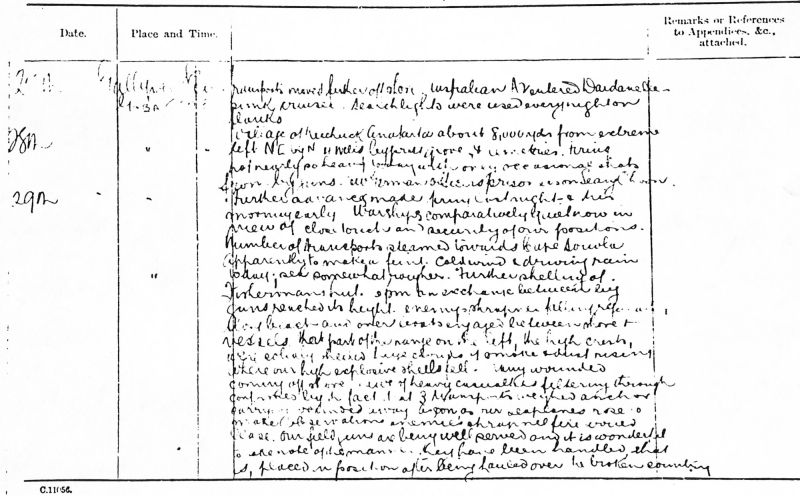 Date.
Place and Time.
Remarks or References
to Appendices, &c.,
attached.
Transports moved further off shore. Australian A entered Dardanelles
sunk cruiser. Searchlights were used every night on
flanks
28th Village of Kuchuk Anafarta about 8,000 yds from extreme
left NE by N Cypress grove, firing
not nearly so heavy today only occasional shots
from big guns. German officers prisoners on
29th Further advances made during last night & this
morning early. Warships comparatively quiet now in
view of close touch and security of our positions.
Number of transports steamed towards Cape Souvla
apparently to make a feint. Cold wind & driving rain
today; sea somewhat rougher. Further shelling of
Fishermans hut. 5pm an exchange between big
guns reached its height. enemys shrapnel falling
along beach and over boats engaged between shore &
vessels. that part of the range on the left, the high crests,
huge clouds of smoke & dust rising
where our high explosive shells fell. Many wounded
coming off shore. News of heavy casualties filtering through
confirmed by the fact that 3 transports weighed anchor
carrying wounded away. As soon as our seaplanes rose to
make observations enemies shrapnel fire
close. Our field guns are being well served and it is wonderful
to the manner they have been handled, that
is, placed in position after being hauled over the broken country
C.11056.